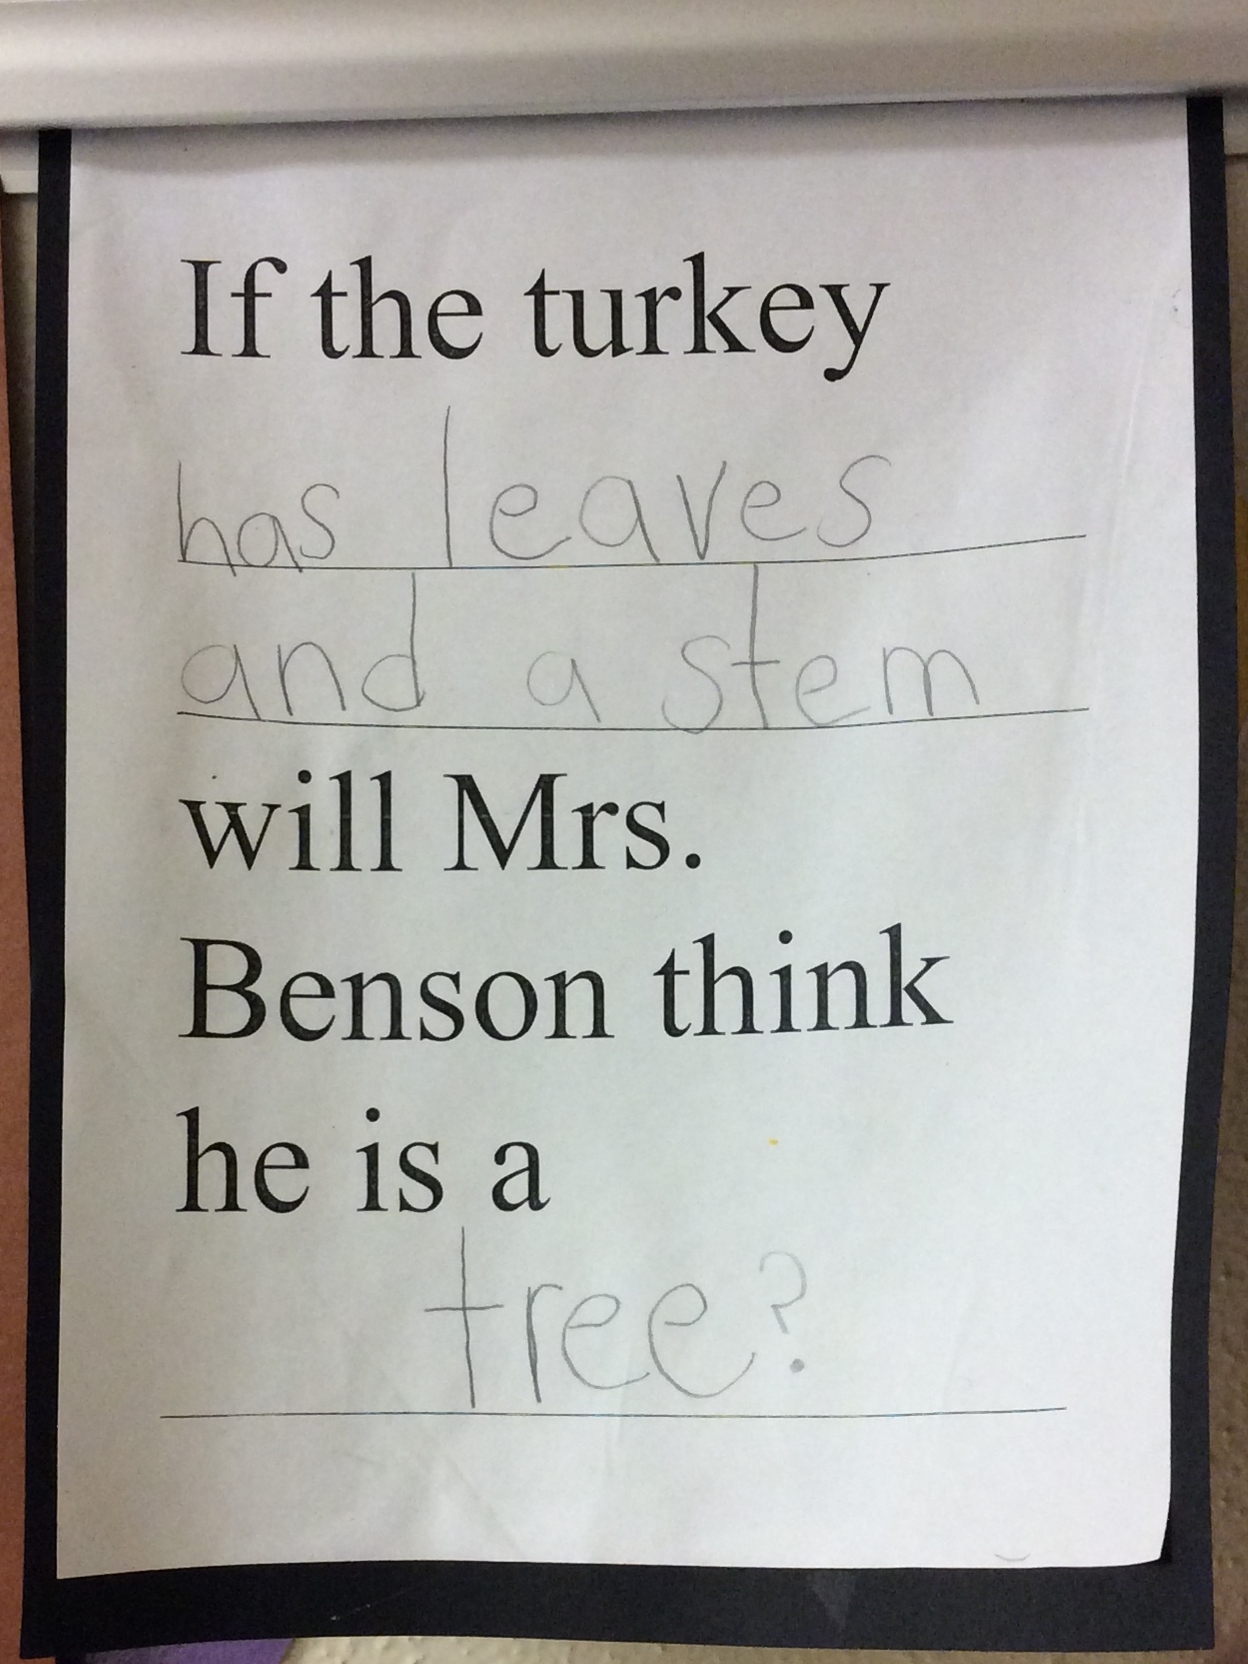 If the turkey
has leaves
and a stem
will Mrs.
Benson think
he is a
tree?